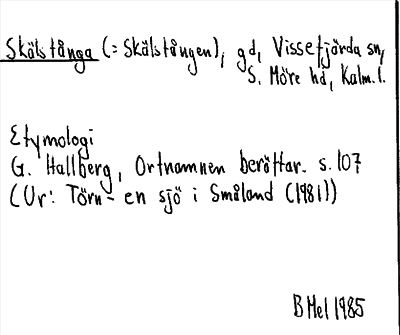 Skälstånga (= Skälstången), gd, Vissefjärda sn,
S. Möre hd, Kalm. l.
Etymologi
G. Hallberg, Ortnamnen berättar. s. 107
(Ur: Törn - en sjö i Småland (1981))
B Mel 1985